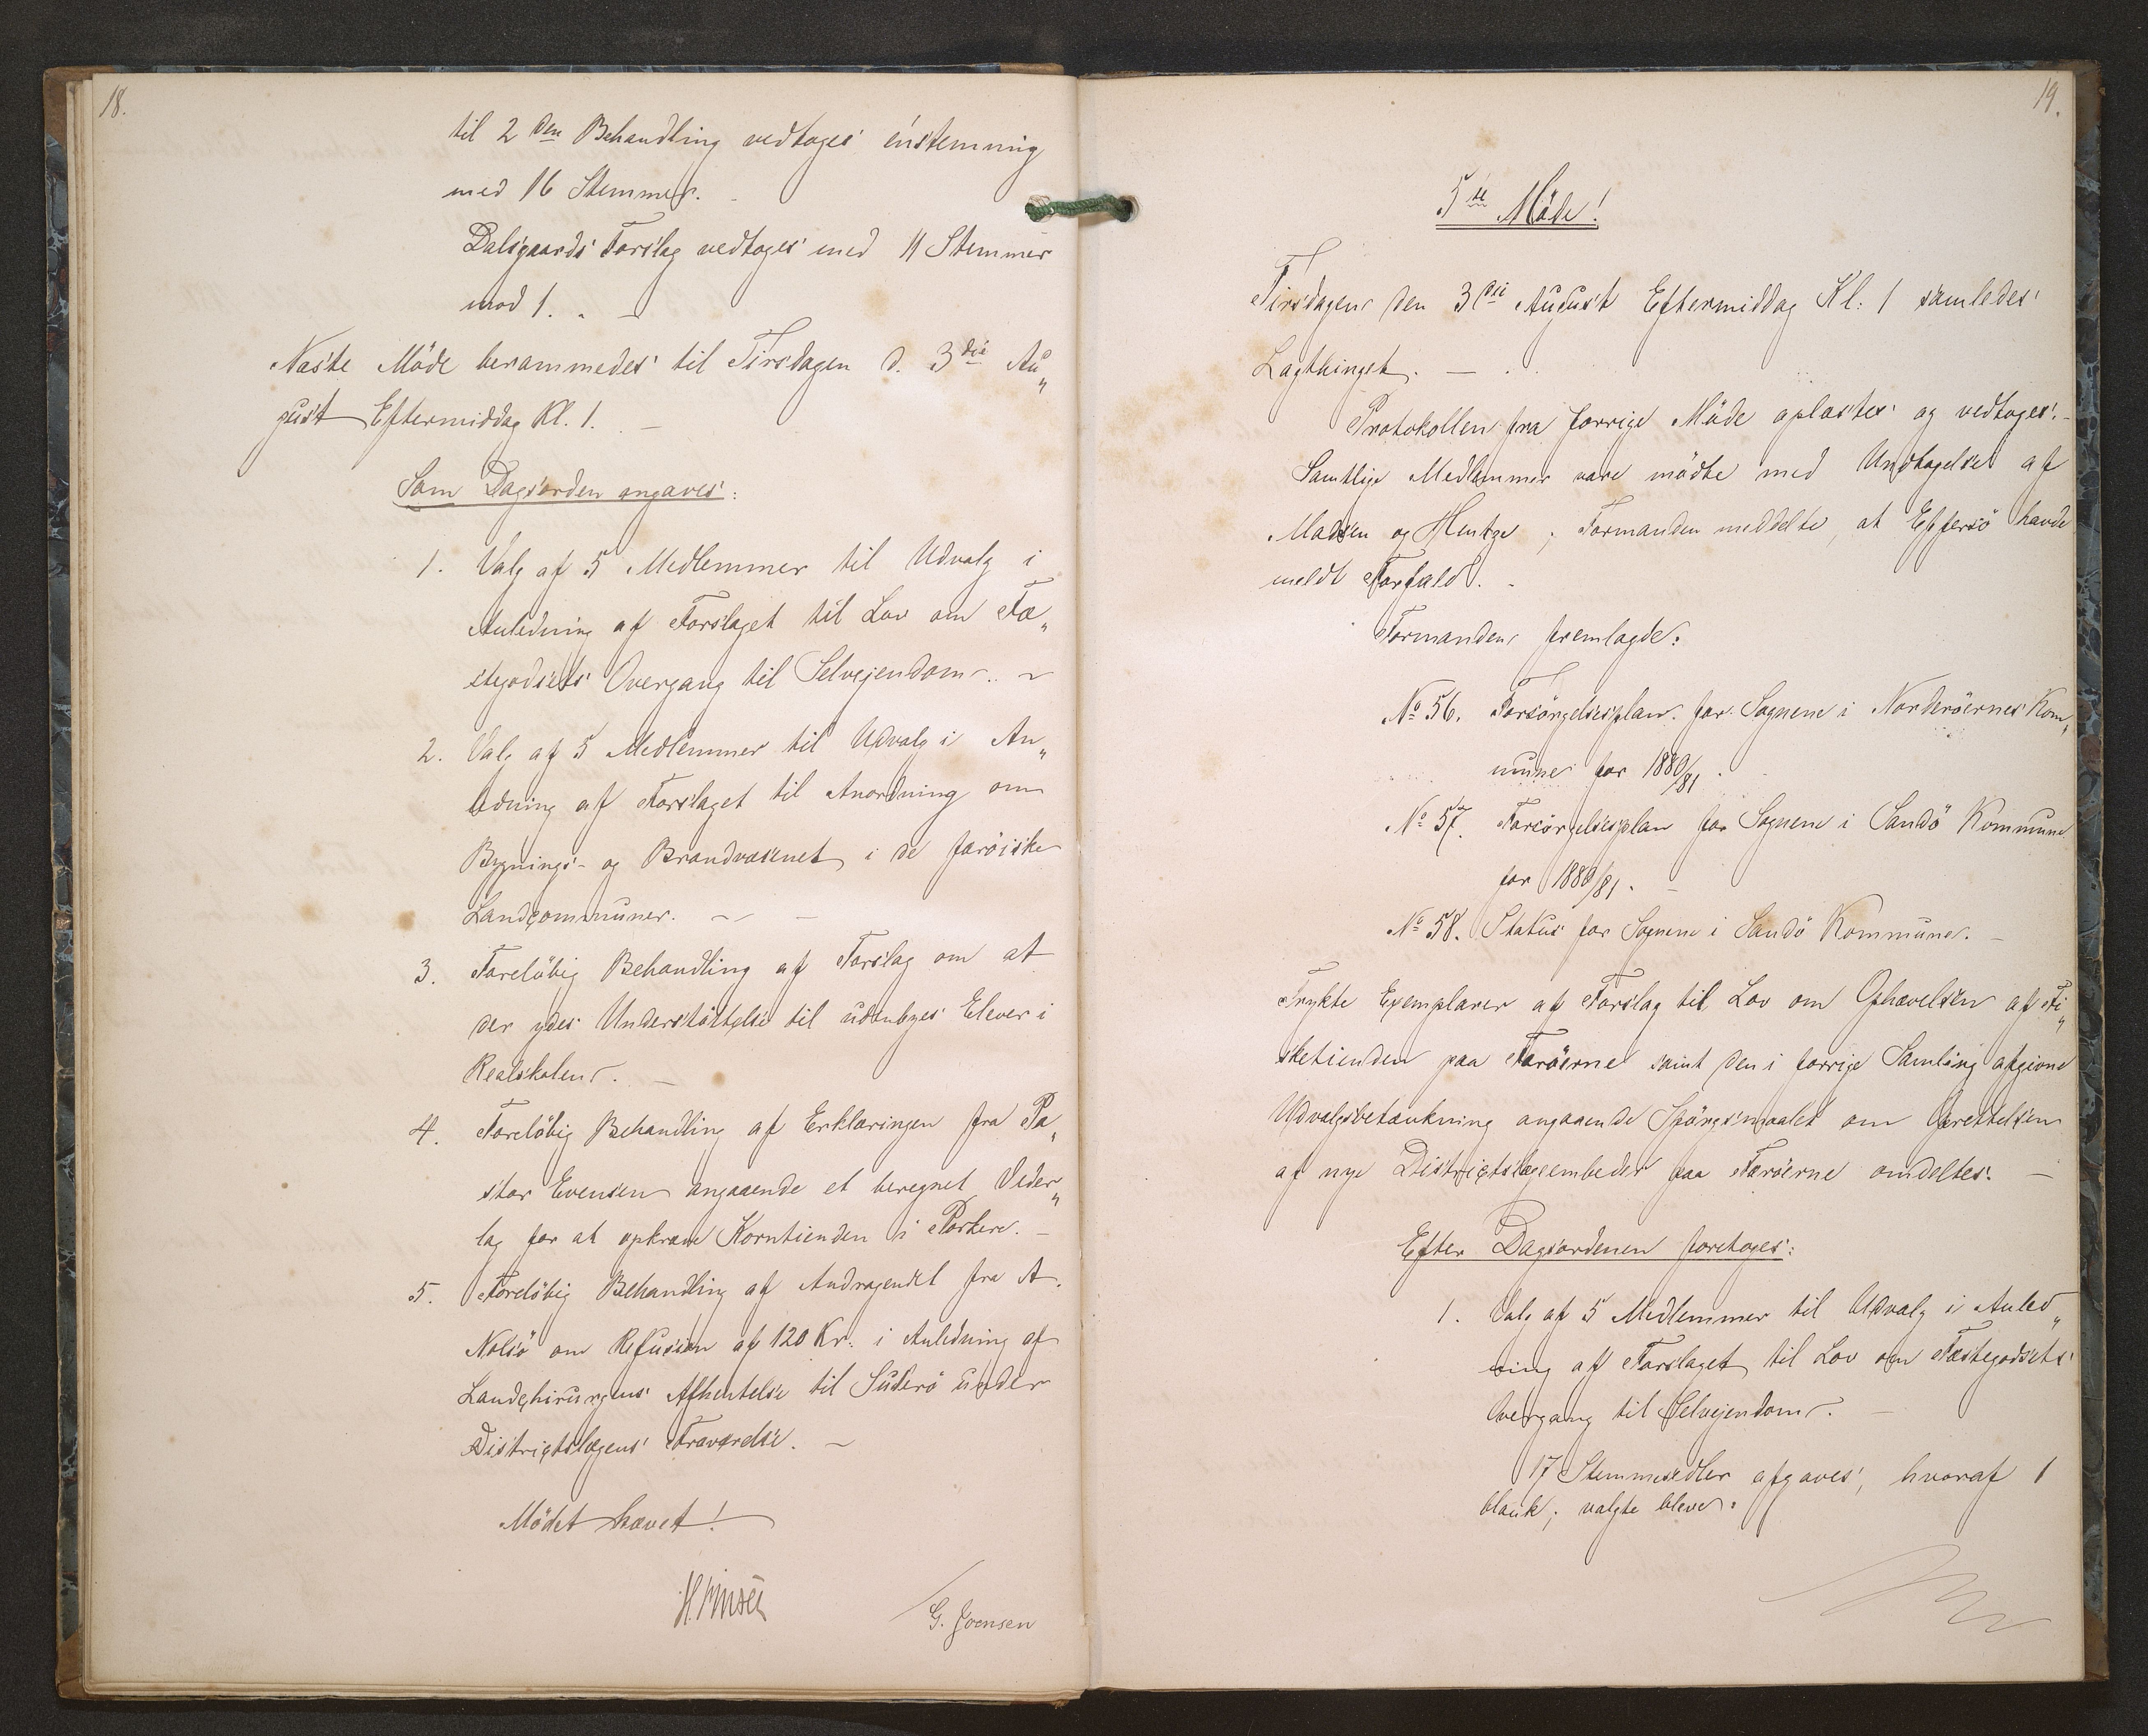 18.
til 2den Behandling vedtoges énstemmig
med 16 Stemmer.
Dalsgaards Forslag vedtoges med 11 Stemmer
mod 1. -
Næste Möde berammedes til Tirsdagen d. 3die Au„
gust Eftermiddag Kl. 1. -
Som Dagsorden angaves:
1. Valg af 5 Medlemmer til Udvalg i
Anledning af Forslaget til Lov om Fæ„
stegodsets Overgang til Selvejendom. -
2. Valg af 5 Medlemmer til Udvalg i An„
ledning af Forslaget til Anordning om
Bygnings- og Brandvæsenet i de færöiske
Landcommuner. - -
3. Foreløbig Behandling af Forslag om at
der ydes Understöttelse til udenbyes Elever i
Realskolen. -
4. Forelöbig Behandling af Erklæringen fra Pa„
stor Evensen angaaende et beregnet Veder„
lag for at opkræve Korntienden i Porkere. -
5. Forelöbig Behandling af Andragendet fra A.
Nolsö om Refusion af 120 Kr. i Anledning af
Landchirurgens Afhentelse til Suderö under
Districtslægens Fraværelse. -
Mödet hævet!
G. Joensen
19.
5te Möde!
Tirsdagen den 3die August Eftermiddag Kl. 1 samledes
Lagthinget. -
Protokollen fra forrige Möde oplæstes og vedtoges. -
Samtlige Medlemmer vare mödte med Undtagelse af
Madsen og Hentze; Formanden meddelte, at Effersö havde
meldt Forfald. -
Formanden fremlagde:
No 56. Forsörgelsesplan for Sognene i Norderöernes Kom„
mune for 1880/81.
No 57. Forsörgelsesplan for Sognene i Sandö Kommune
for 1880/81. -
No 58. Status for Sognene i Sandö Kommune. -
Trykte Exemplarer af Forslag til Lov om Ophævelsen af Fi„
sketienden paa Færöerne samt den i forrige Samling afgivne
Udvalgsbetænkning angaaende Spörgsmaalet om Oprettelsen
af nye Districtslægeembeder paa Færöerne omdeltes. -
Efter Dagsordenen foretoges:
1. Valg af 5 Medlemmer til Udvalg i Anled„
ning af Forslaget til Lov om Fæstegodsets
Overgang til Selvejendom. -
17 Stemmesedler afgaves, hvoraf 1
blank; valgte bleve: